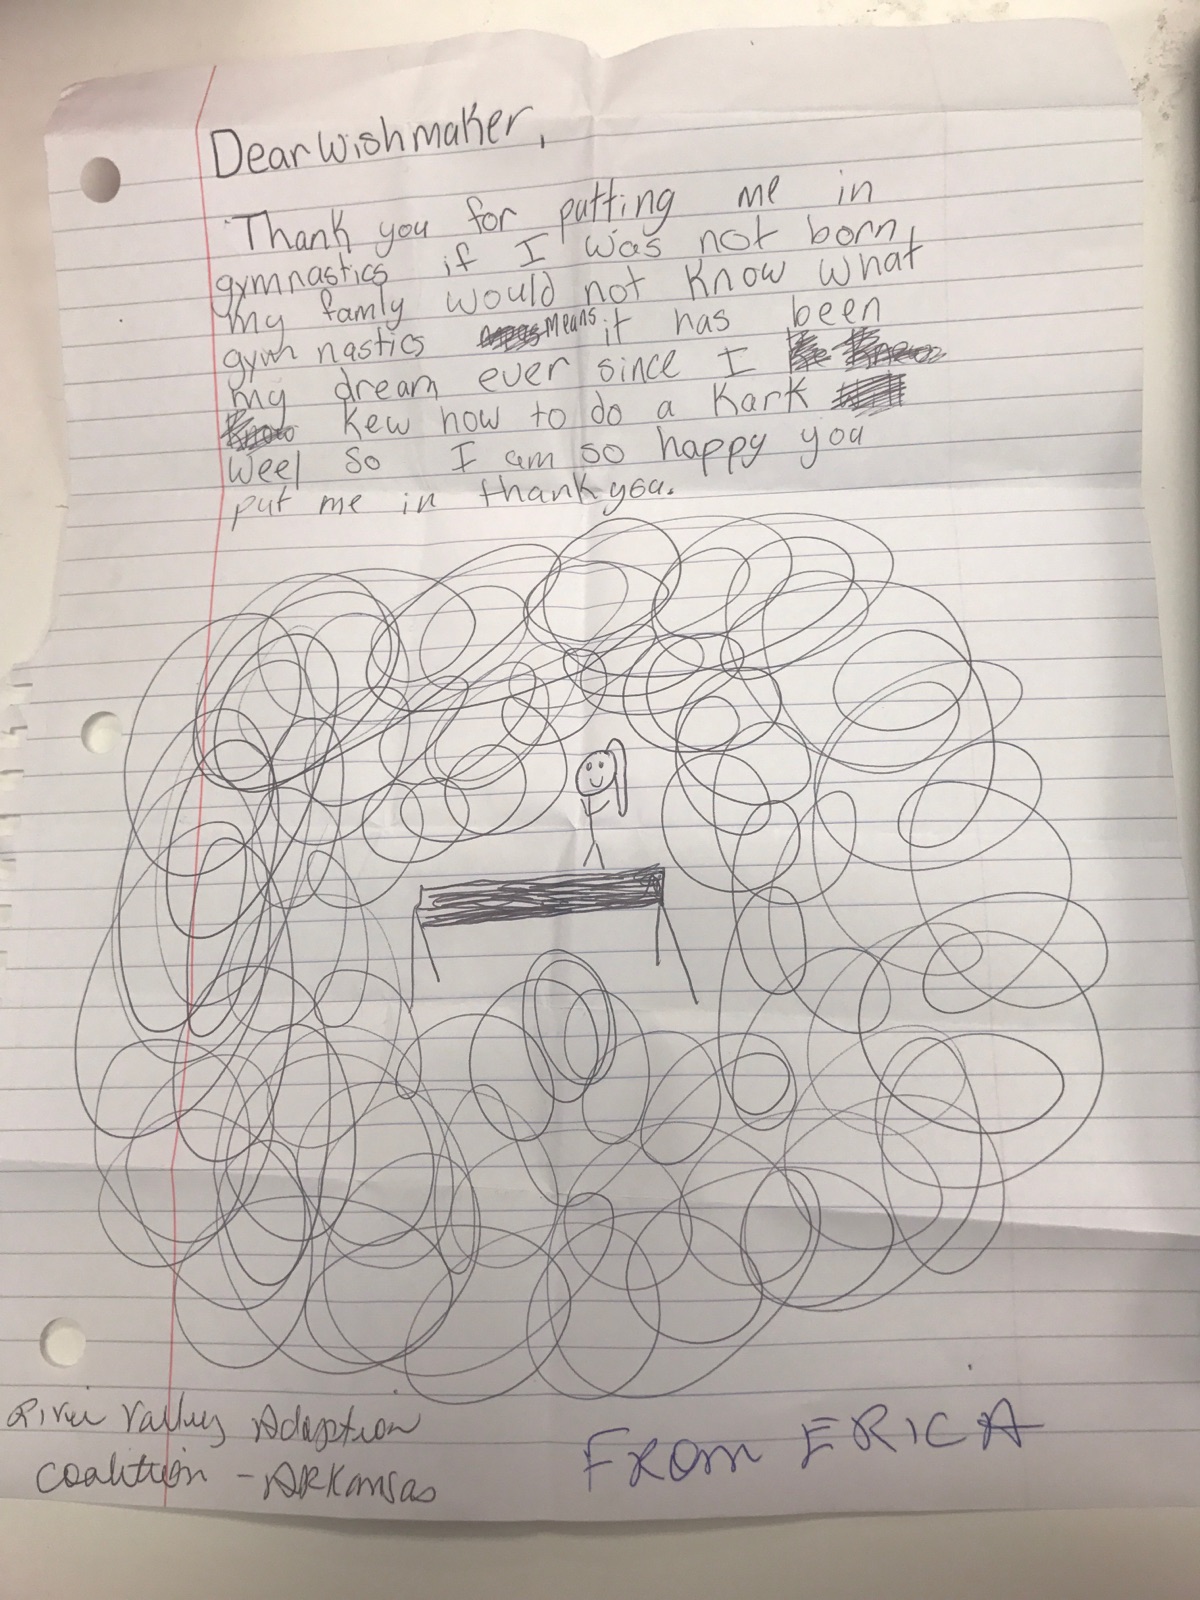 Dear Wishmaker,
Thank you for putting me in
gymnastics if I was not born
my famly would not know what
gym nastics Means it has been
my dream ever since I
kew how to do a kark
weel so I am so happy you
put me in thank you.
River Valley Adoption
coalition - ARKansas
FROM ERICA